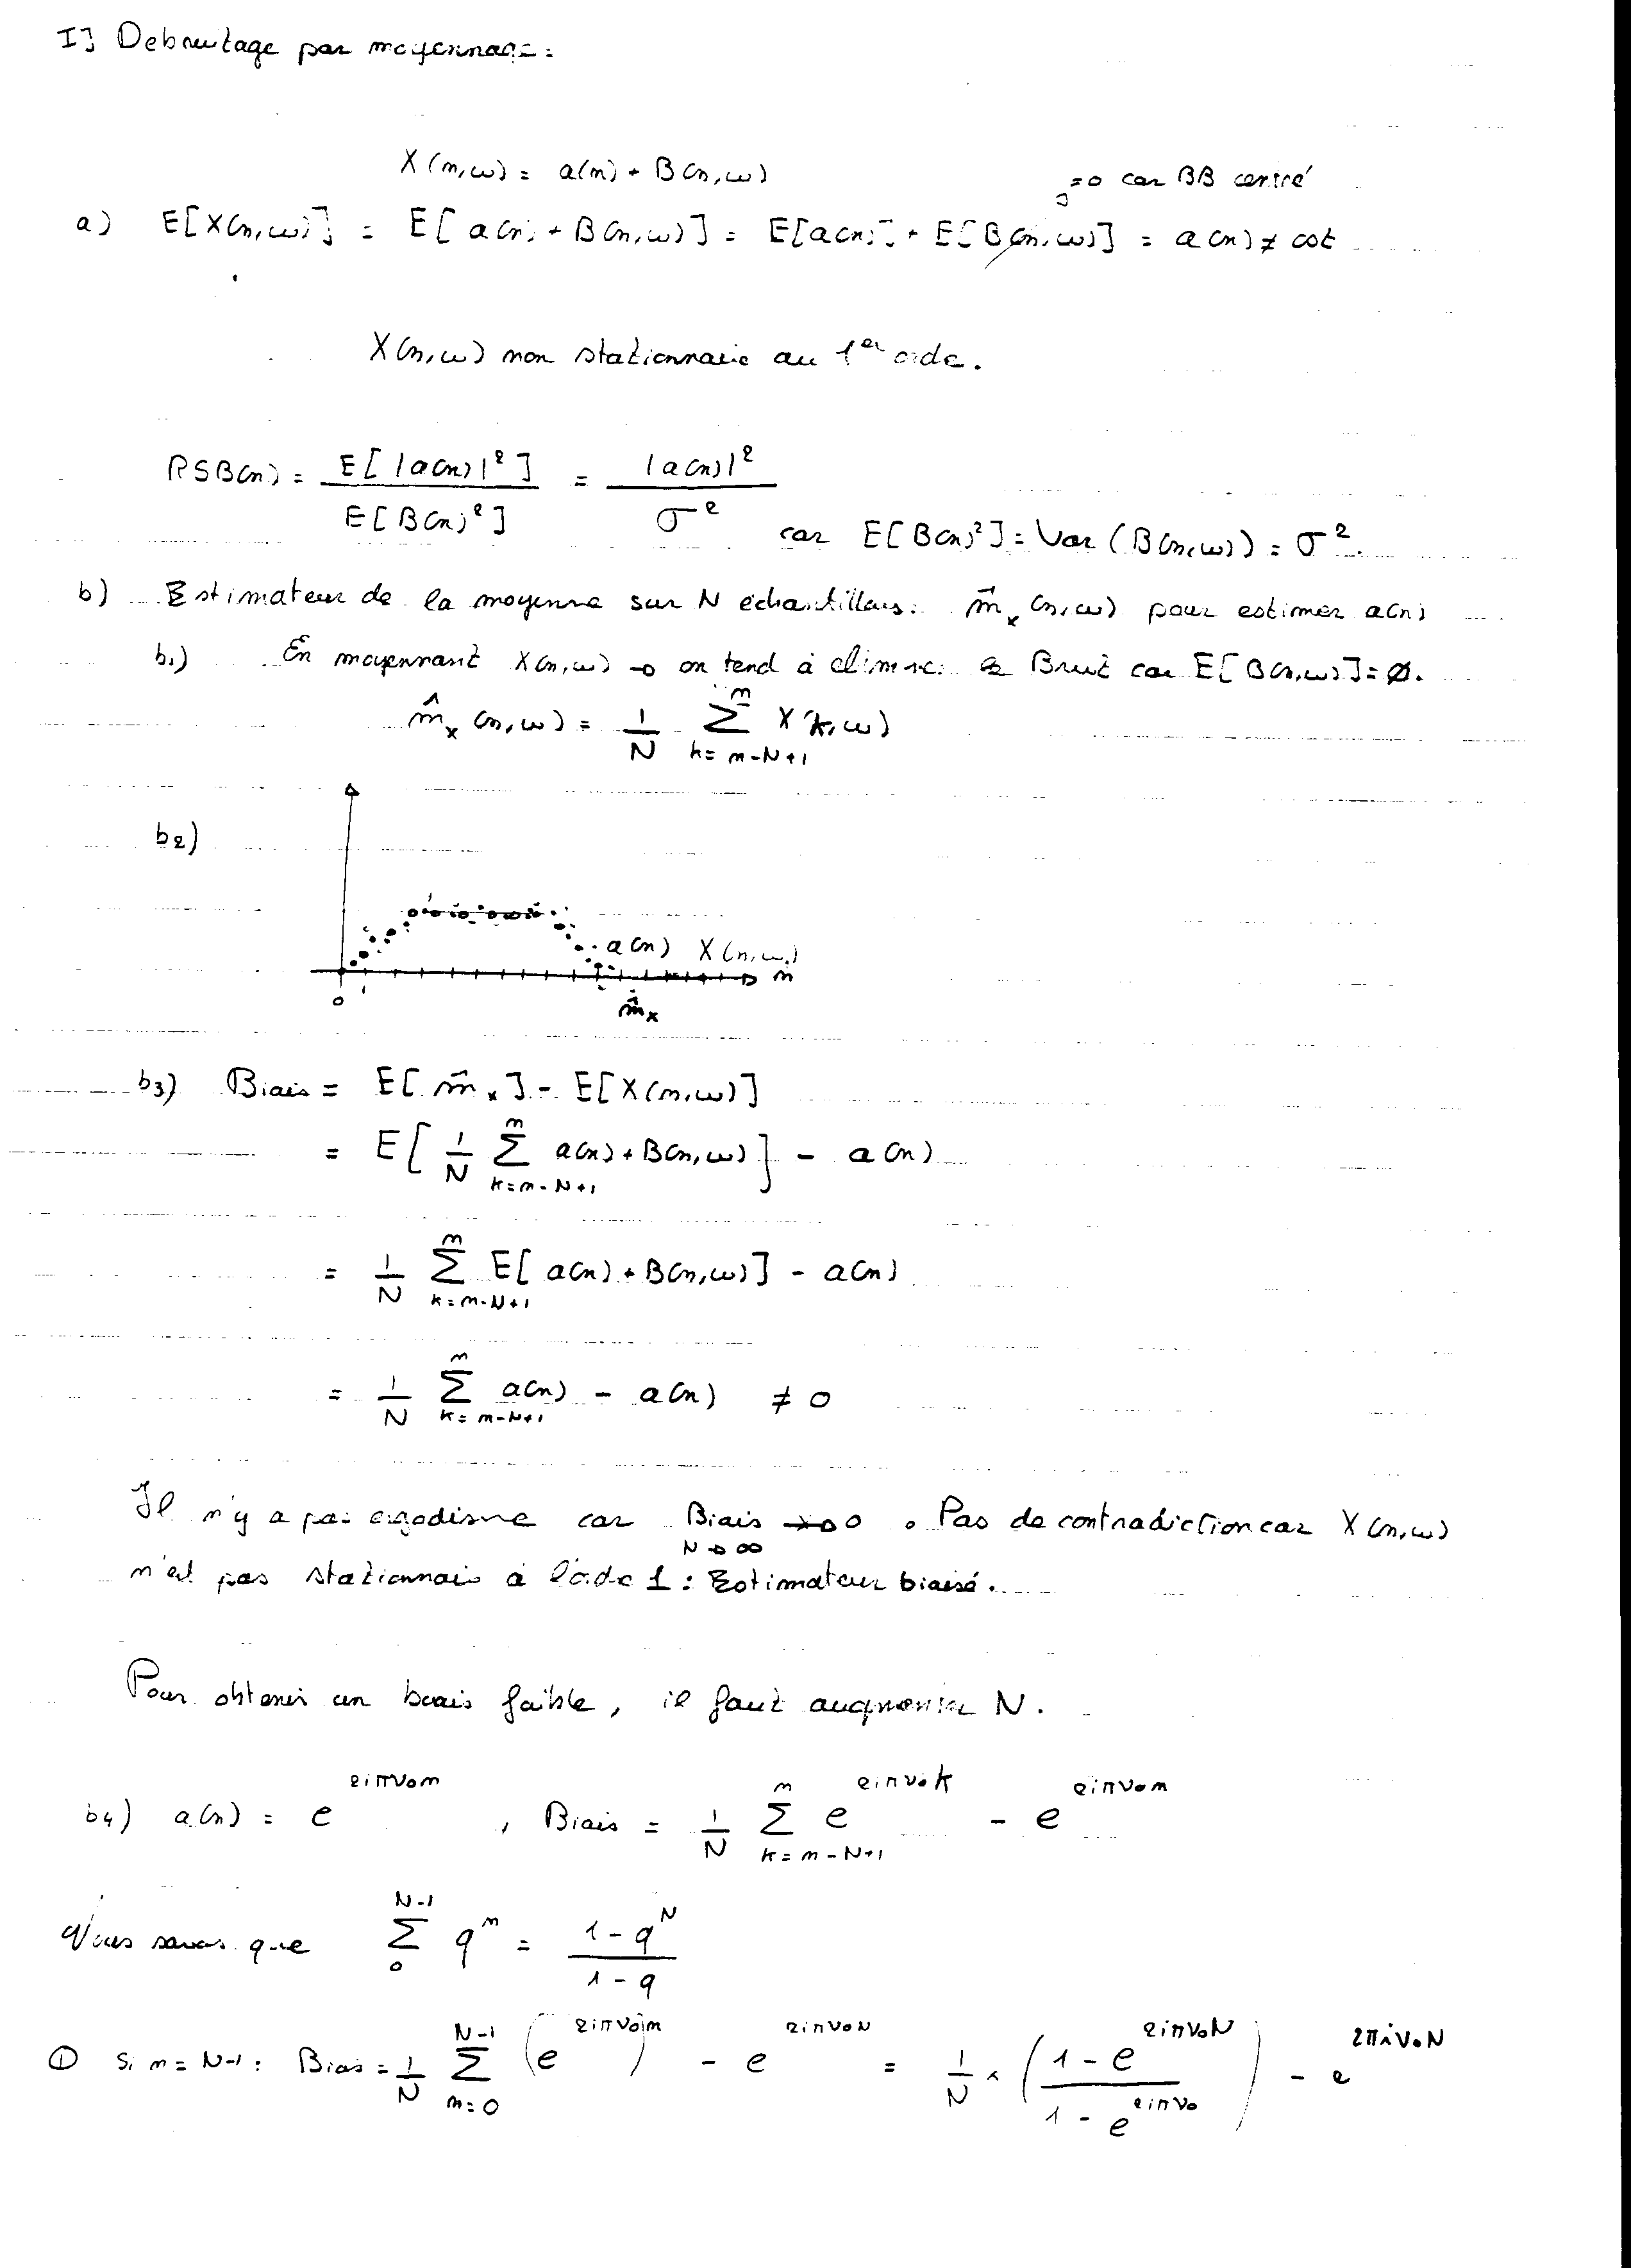 I] Debruitage par moyennage :
X(n,ω) = a(n) + B(n,ω)
=0 car BB centré
a) E[X(n,ω)] = E[a(n) + B(n,ω)] = E[a(n)] + E[B(n,ω)] = a(n) ≠ cst
X(n,ω) non stationnaire au 1er ordre.
RSB(n) = E[|a(n)|²] / E[B(n)²] = |a(n)|² / σ² car E[B(n)²] = Var(B(n,ω)) = σ².
b) Estimateur de la moyenne sur N échantillons : m̂x(n,ω) pour estimer a(n)
b1) En moyennant X(n,ω) → on tend à eliminer le Bruit car E[B(n,ω)] = Ø.
m̂x(n,ω) = 1/N Σ_{k=n-N+1}^{n} X(k,ω)
b2)
a(n) X(n,ω)
n
0 1
m̂x
b3) Biais = E[m̂x] - E[X(n,ω)]
= E[1/N Σ_{k=n-N+1}^{n} a(n) + B(n,ω)] - a(n)
= 1/N Σ_{k=n-N+1}^{n} E[a(n) + B(n,ω)] - a(n)
= 1/N Σ_{k=n-N+1}^{n} a(n) - a(n) ≠ 0
Il n'y a pas ergodisme car Biais ↛ 0 N→∞. Pas de contradiction car X(n,ω)
n'est pas stationnaire à l'ordre 1 : Estimateur biaisé.
Pour obtenir un biais faible, il faut augmenter N.
b4) a(n) = e^{2iπν₀n}, Biais = 1/N Σ_{k=n-N+1}^{n} e^{2iπν₀k} - e^{2iπν₀n}
Nous savons que Σ_{0}^{N-1} q^n = (1 - q^N) / (1 - q)
① Si n = N-1 : Biais = 1/N Σ_{n=0}^{N-1} (e^{2iπν₀n}) - e^{2iπν₀N} = 1/N × ((1 - e^{2iπν₀N}) / (1 - e^{2iπν₀})) - e^{2πiν₀N}